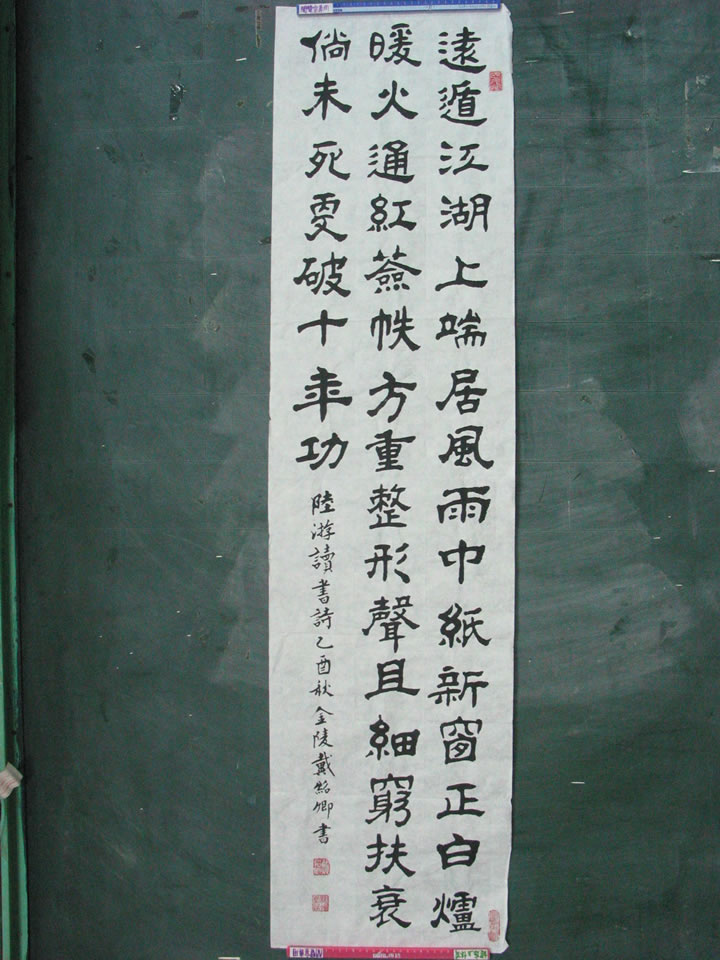 遠遁江湖上端居風雨中紙新窗正白爐
暖火通紅簽帙方重整形聲且細窮扶衰
倘未死更破十年功
陸游讀書詩乙酉秋金陵戴銘卿書